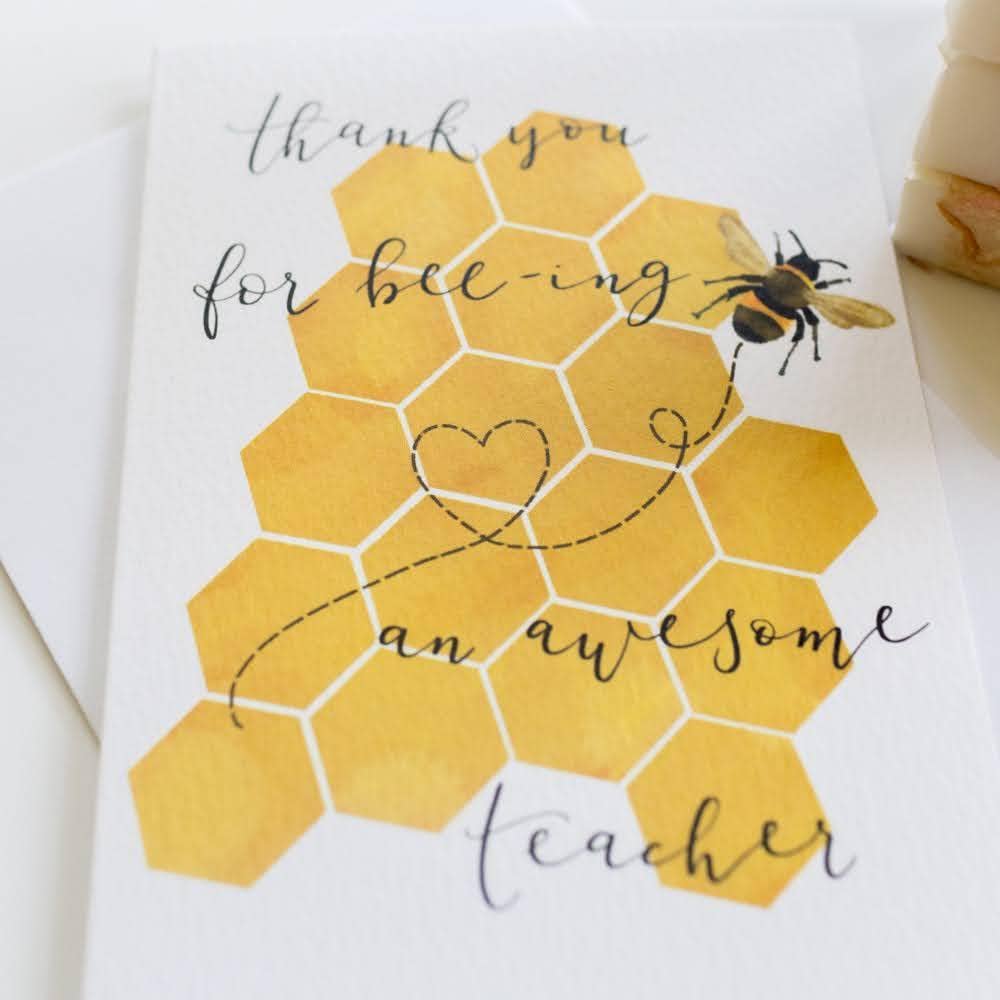 thank you
for bee-ing
an awesome
teacher